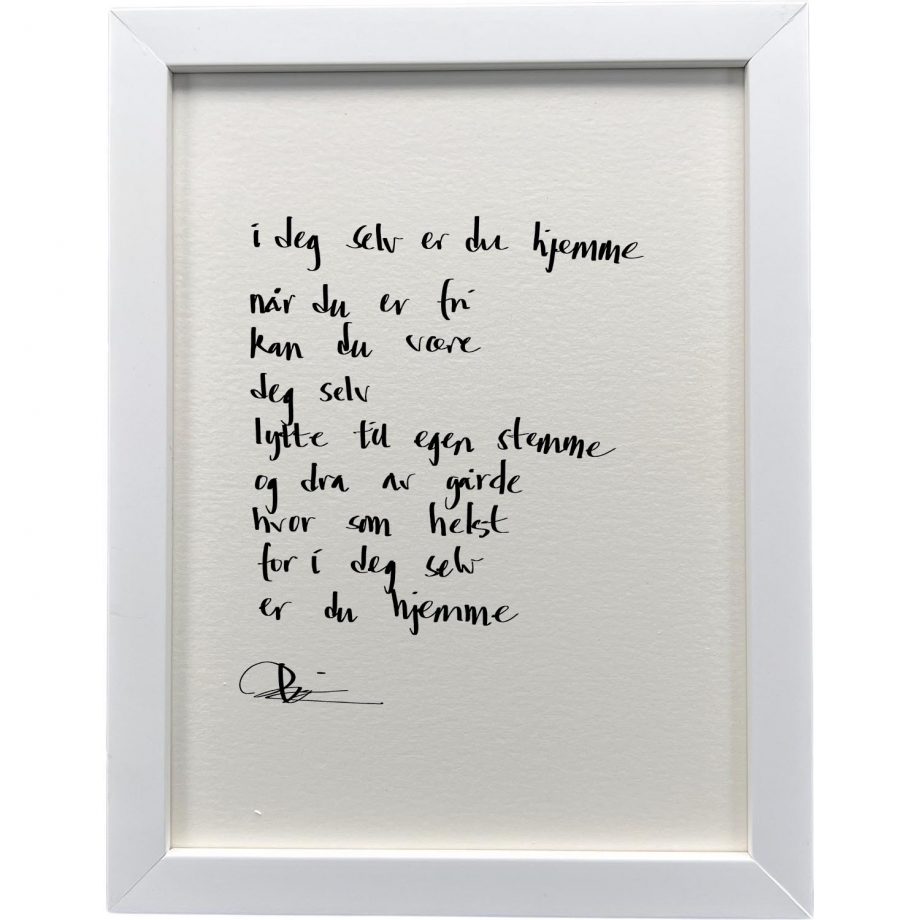 i deg selv er du hjemme
når du er fri
kan du være
deg selv
lytte til egen stemme
og dra av gårde
hvor som helst
for i deg selv
er du hjemme